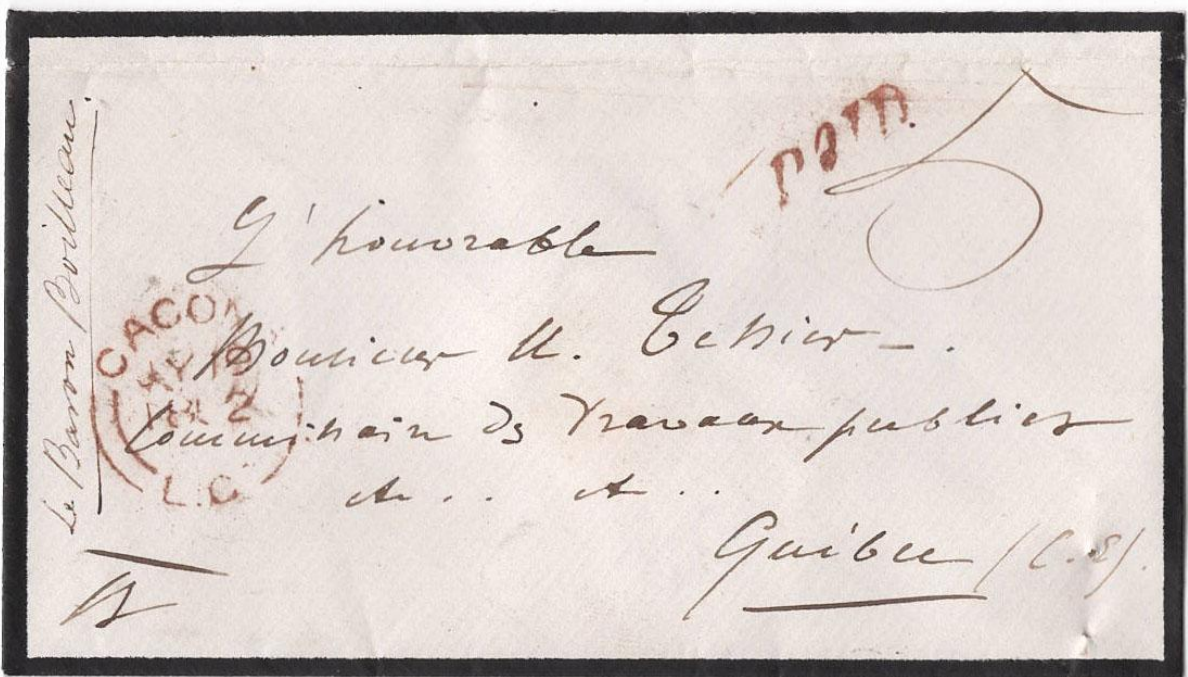 Le Baron Boilleau.
PAID
5
L'honorable
Monsieur U. Tessier -.
Commissaire des Travaux publics
&c .. &c ..
Québec (C.E).
CACON
L.C